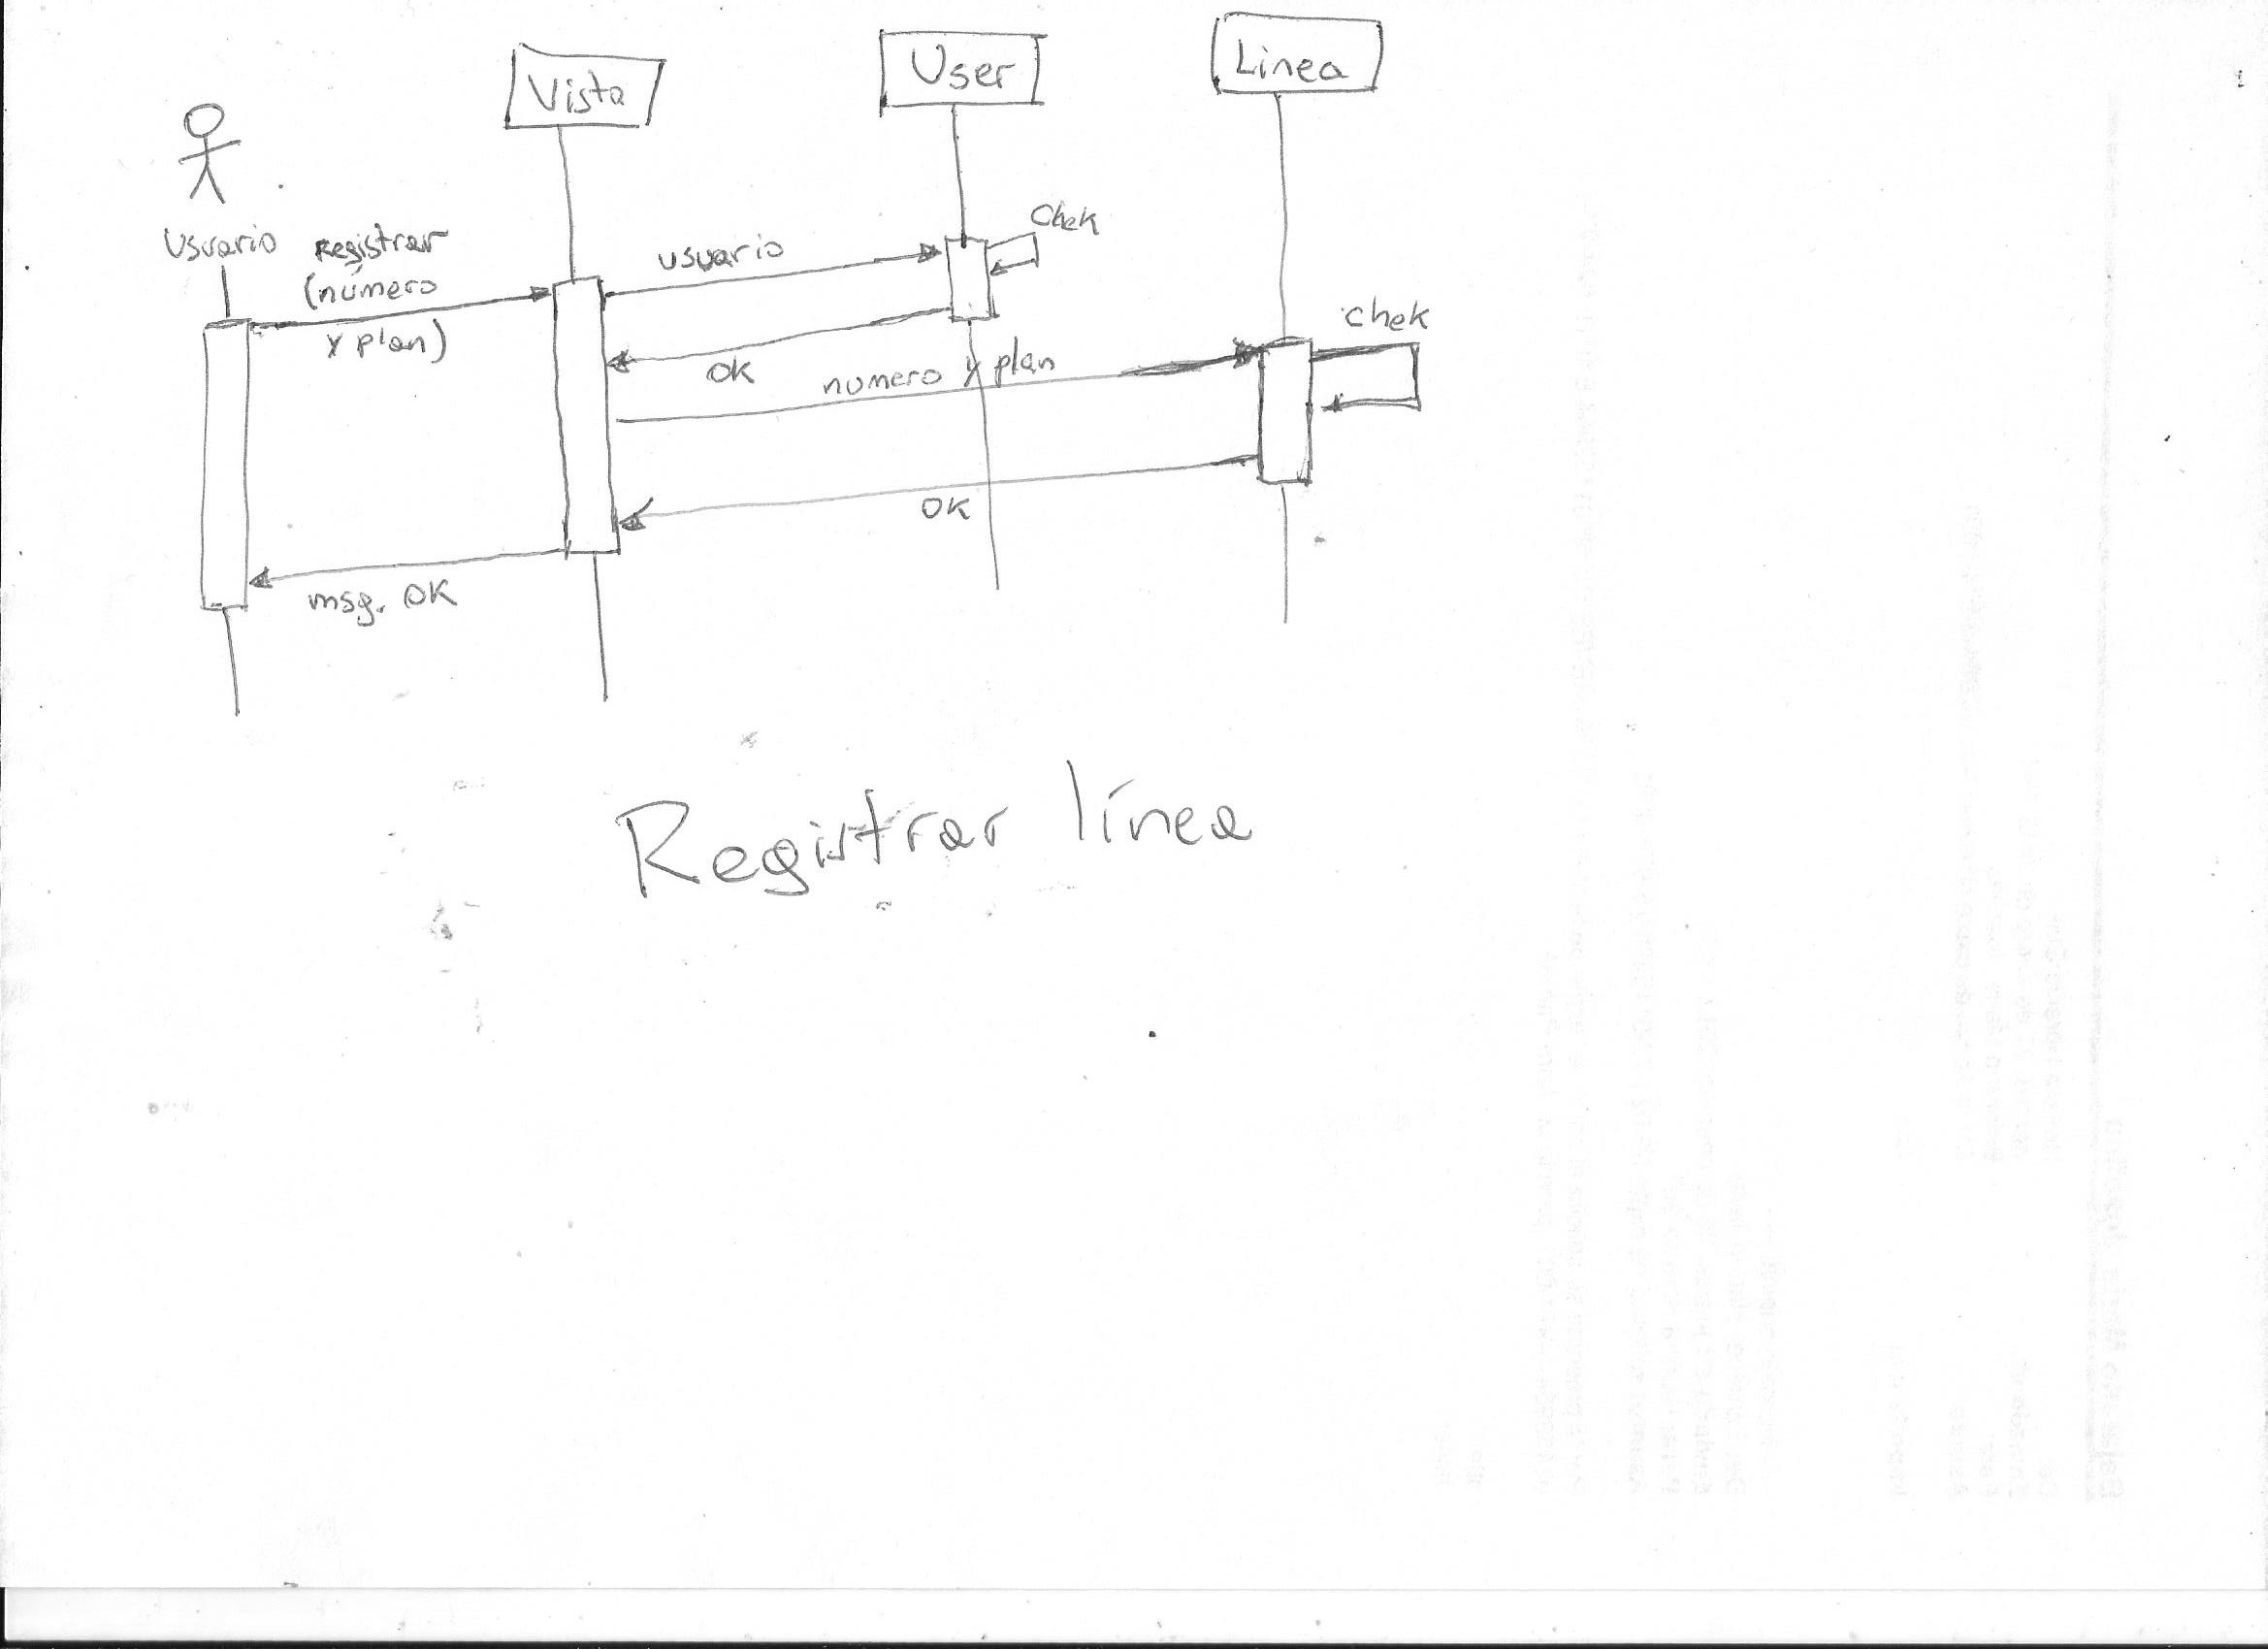 Vista
User
Linea
Usuario
Registrar
(número
y plan)
usuario
Chek
OK
numero y plan
chek
OK
msg. OK
Registrar línea